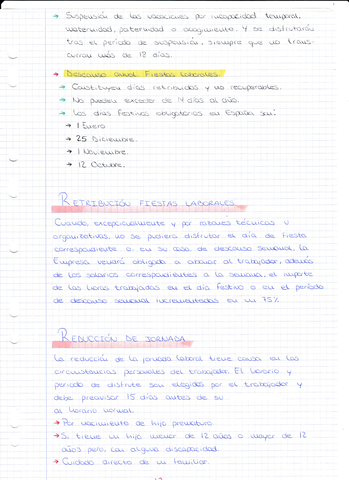 → Suspensión de las vacaciones por incapacidad temporal,
maternidad, paternidad o acogimiento. Y se disfrutarán
tras el período de suspensión, siempre que no trans-
curran más de 18 días.
→ Descanso anual Fiestas Laborales
→ Constituyen días retribuidos y no recuperables.
→ No pueden exceder de 14 días al año.
→ Los días festivos obligatorios en España son:
→ 1 Enero
→ 25 Diciembre.
→ 1 Noviembre.
→ 12 Octubre.
RETRIBUCIÓN FIESTAS LABORALES
Cuando, excepcionalmente y por razones técnicas u
organizativas, no se pudiera disfrutar el día de fiesta
correspondiente o, en su caso, de descanso semanal, la
Empresa vendrá obligada a abonar al trabajador, además
de los salarios correspondientes a la semana, el importe
de las horas trabajadas en el día festivo o en el período
de descanso semanal incrementadas en un 75%
REDUCCIÓN DE JORNADA
La reducción de la jornada laboral tiene causa en las
circunstancias personales del trabajador. El horario y
periodo de disfrute son elegidos por el trabajador y
debe preavisar 15 días antes de su
al horario normal.
→ Por nacimiento de hijo prematuro
→ Si tiene un hijo menor de 12 años o mayor de 12
años pero con alguna discapacidad.
→ Cuidado directo de un familiar.